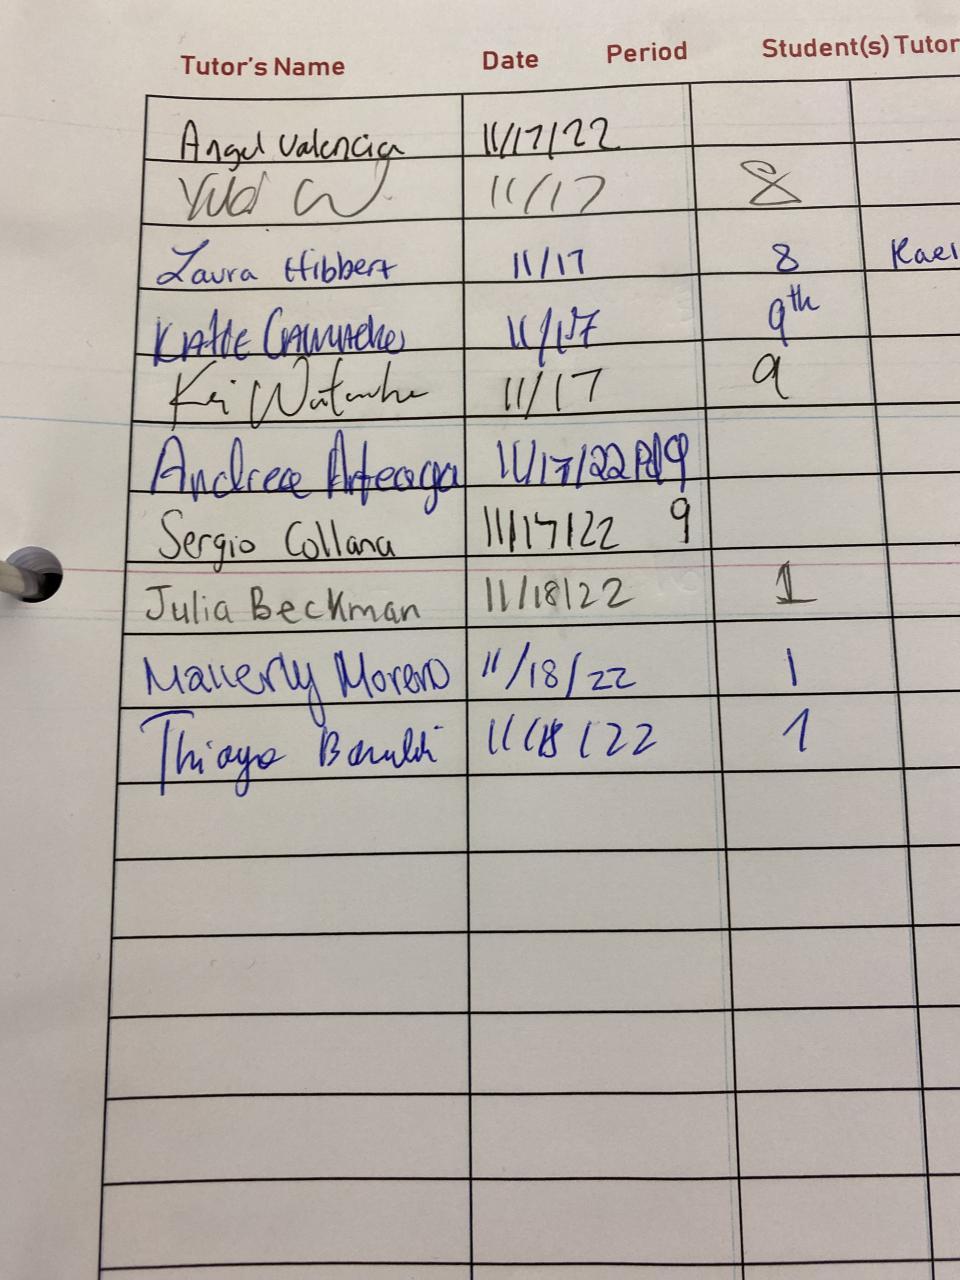 Tutor's Name Date Period Student(s) Tutor
Angel Valencia 11/17/22
W 11/17 8
Laura Hibbert 11/17 8 Kael
Katte Camacho 11/17 9th
Kei Watanabe 11/17 9
Andrea Arteaga 11/17/22 Pd 9
Sergio Collana 11/17/22 9
Julia Beckman 11/18/22 1
Mallerly Moreno 11/18/22 1
Thiago 11/18/22 1